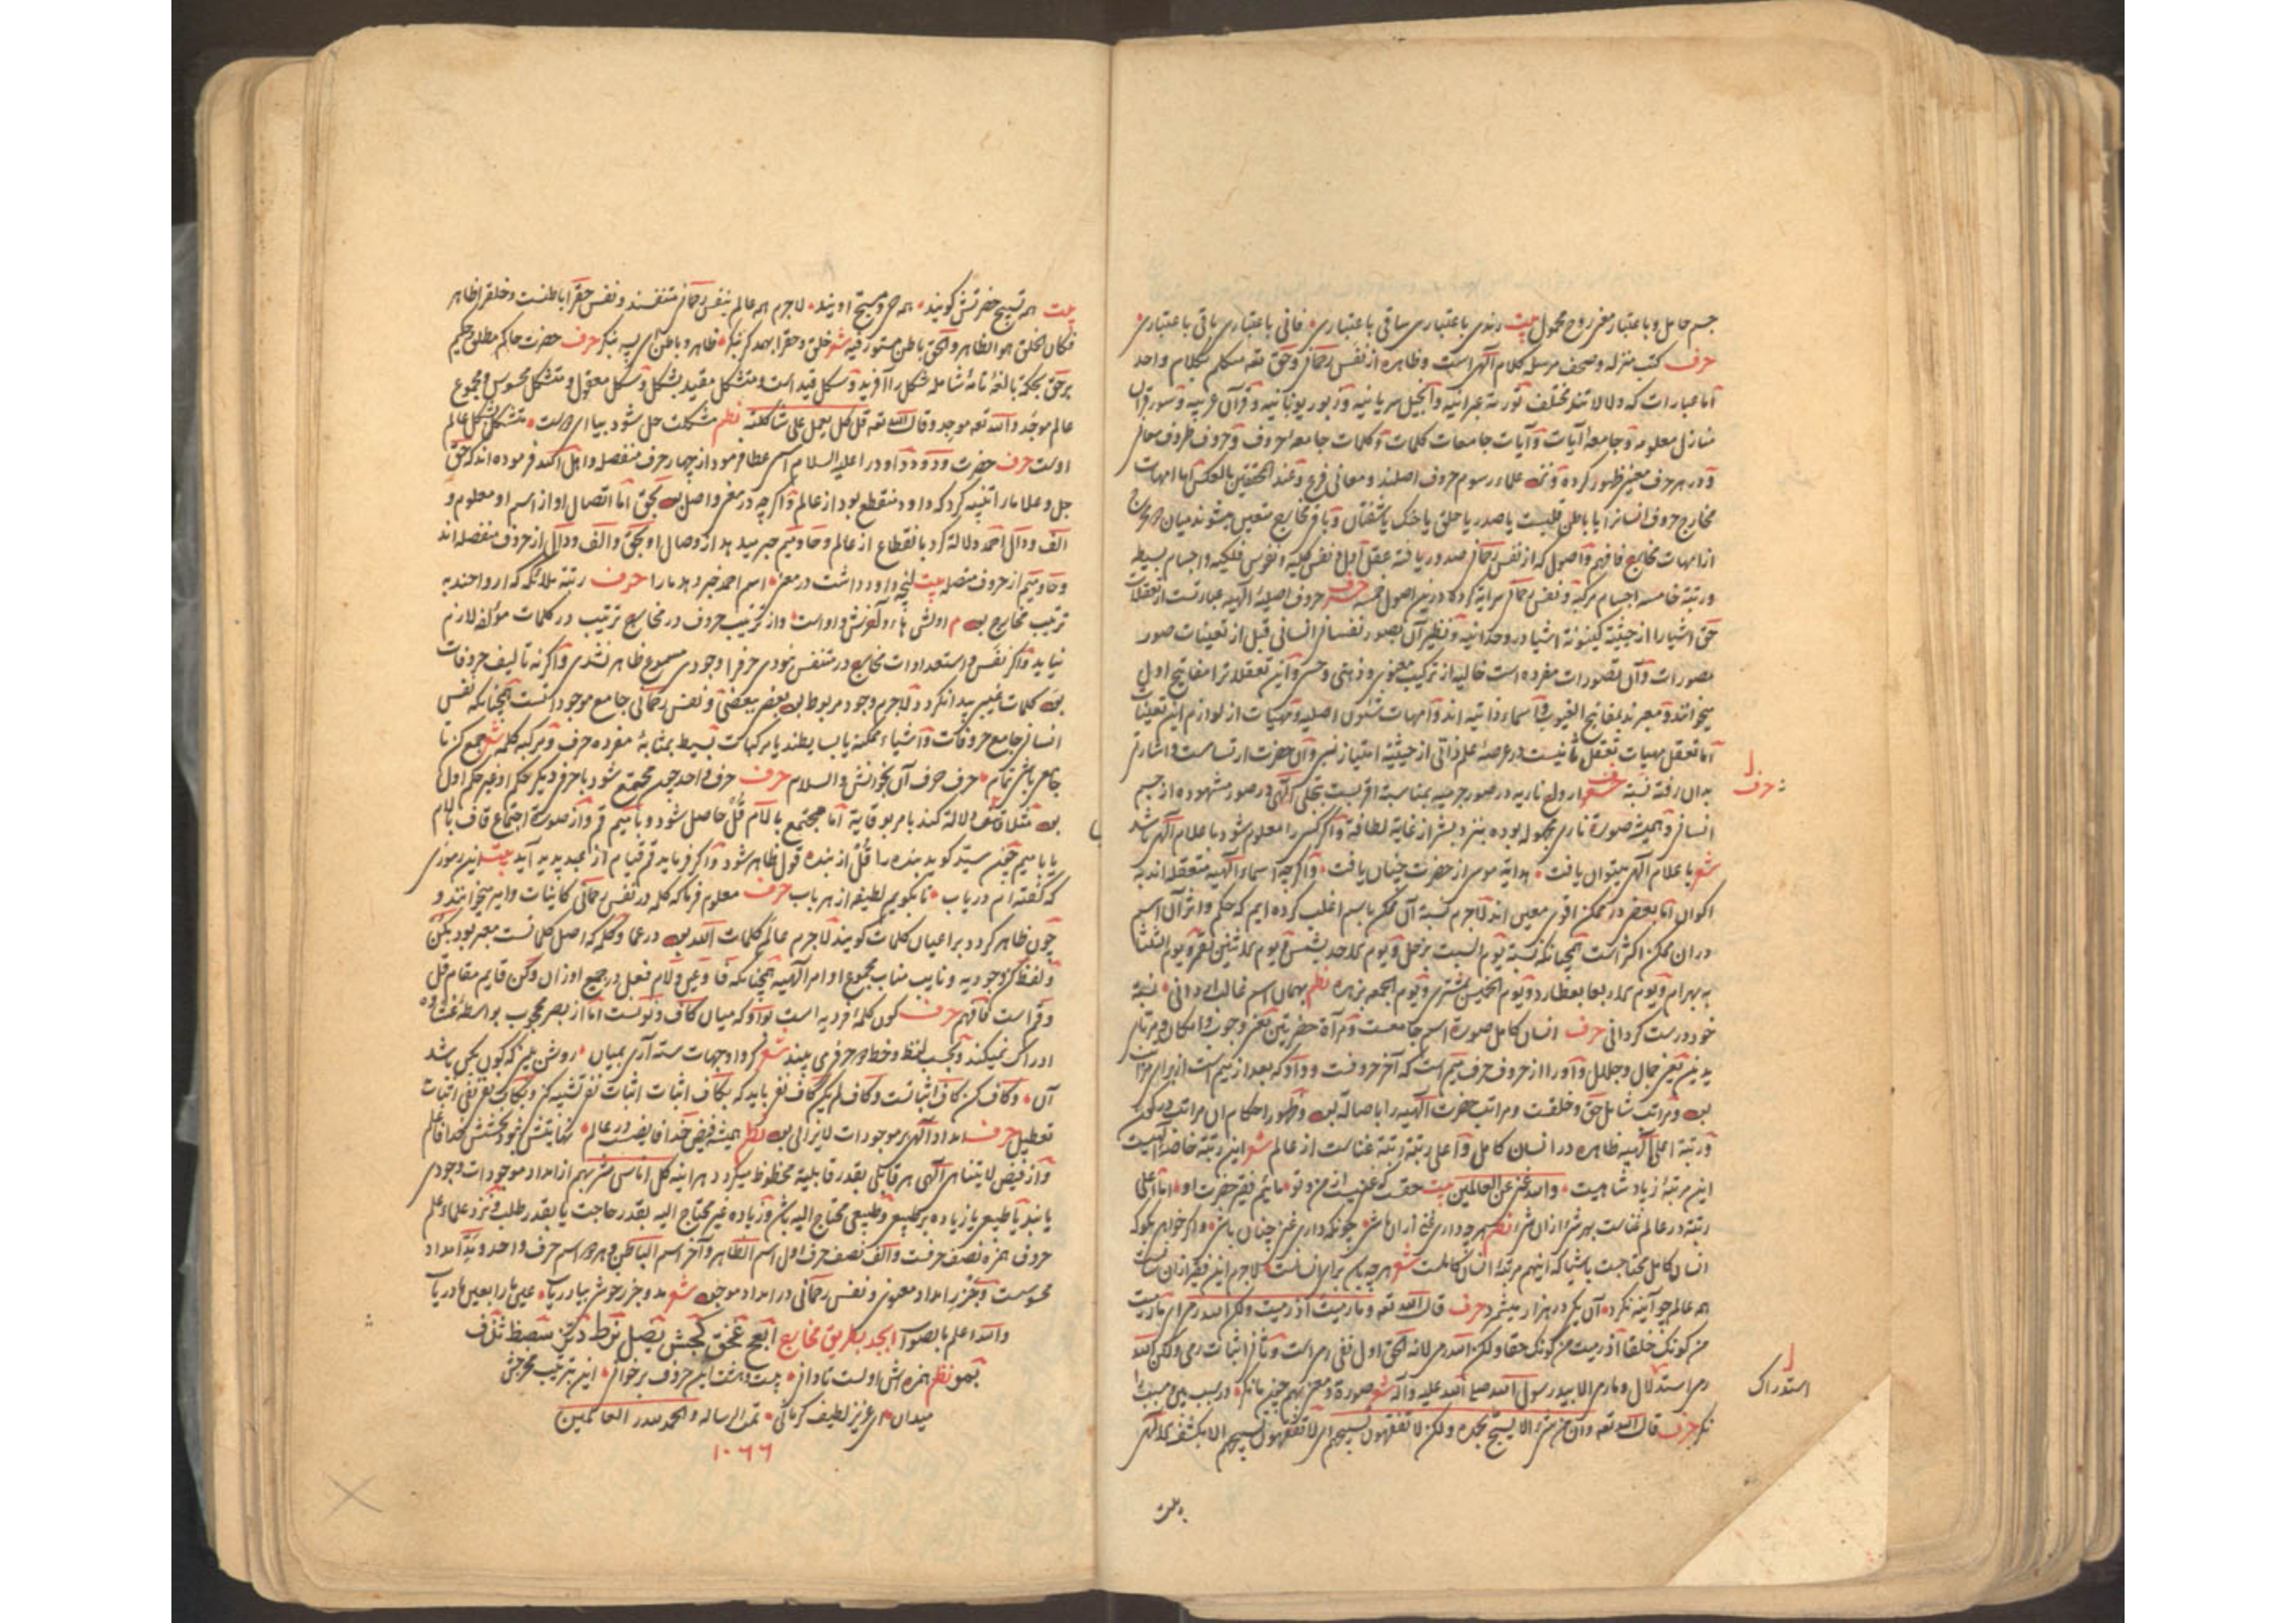 جسم حامل و باعتبار معنی روح محمول بیت رندی باعتباری ساقی باعتباری فانی باعتباری باقی باعتباری
حرف کتب منزله و صحف مرسله کلام الهی است و ظاهره از نفس رحمانی و حق تعه متکلم بکلام واحد
اما عبارات که دلالاتند مختلف توریة عبرانیه و انجیل سریانیه و زبور یونانیه و قرآن عربیه و سور قرآن
منازل معلومه و جامعه آیات و آیات جامعات کلمات و کلمات جامعه حروف و حروف ظروف معانی
و در هر حرف معنی ظهور کرده و نزد علماء رسوم حروف اصلند و معانی فرع و عند المحققین بالعکس اما امهات
مخارج حروف انسانی یا باطن قلبست یا صدر یا حلق یا حنک یا شفتان و باقی مخارج متعین میشوند میان هر مخرج
از امهات مخارج فافهم و اصول که از نفس رحمانی صدور یافته عقل اول و نفس کلیه و نفوس فلکیه و اجسام بسیط
و رتبة خامسه اجسام مرکبه و نفس رحمانی سرایة کرده درین اصول خمسه حرف حروف اصلیة الهیه عبارتست از تعقلات
حق اشیا را از حیثیة کینونة اشیا در وحدانیه و نظیر آن تصور نفسانی انسانی قبل از تعینات صور
بصورات و آن تصورات مفرده است خالیه از ترکیب معنوی و ذهنی و حسی و این تعقلات را مفاتیح اول
میخوانند و معبرند بمفاتیح الغیوب و اسماء ذاتیه اند و امهات شئون اصلیه و مهیات از لوازم این تعینات
اما تعقل مهیات تعقل ثانیست در عرصة علم ذاتی از حیثیة امتیاز نسبی و آن حضرت ارتسامست و اشارتی
بدان رفته نسبة حرف ارواح ناریه در صور جسمیه بمناسبة اقربیست بتجلی الهی در صور مشهوده از جسم
: حرف
انسانی و همیشه صورة ناری مجهوله بوده نزد بشر از غایة لطافة و اگر کسی را معلوم شود باعلام الهی باشد
شعر با علام الهی میتوان یافت هدایة موسی از حضرت چنان یافت و اگرچه اسماء الهیه متعقله اند به
اکوان اما بعضی در ممکن اقوی معین اند لاجرم نسبة آن ممکن باسم اغلب کرده ایم که حکم و اثر آن اسم
در ان ممکن اکثر است همچنانکه نسبة یوم السبت بزحل و یوم الاحد بشمس و یوم الاثنین بقمر و یوم الثلثا
به بهرام و یوم الاربعا بعطارد و یوم الخمیس بمشتری و یوم الجمعه بزهره نظم بهمان اسم غالب ار دانی نسبة
خود درست گردانی حرف انسان کامل صورة اسم جامعست و مرآة حضرتین یعنی وجوب و امکان و مرتبای
یدینین یعنی جمال و جلال و او را از حروف حرف میم است که آخر حروفست و واو که بعد از میم است از برای مراتب
بود و مراتب شامل حق و خلقست و مراتب حضرت الهیه را با صاله بود و ظهور احکام ان مراتب در کون
و رتبة اعلی الهیه ظاهره در انسان کامل و اعلی رتبة رتبة غناست از عالم شعر این رتبة خاصة الهیست
این مرتبة زیاد شاهیست والله غنی عن العالمین بیت حقست که غنیست از من و تو مائیم فقیر حضرت او اما اعلی
رتبة در عالم غناست بهر شی از ان شی نظم هر چه داری غنی از ان باشی چونکه داری غنی چنان باشی و اگر خواهی بگو که
انسان کامل محتاجست باشیا که اینهم مرتبة انسان کاملست شعر هر چه بود برای انسانست لاجرم این فقیر از ان سانست
همه عالم چو آینه نگرد آن یکی در هزار میشمرد حرف قال الله تعه و ما رمیت اذ رمیت ولکن الله رمی ای ما رمیت
من کونک خلقا اذ رمیت من کونک حقا ولکن الله رمی لانه الحق اول نفی رمی است و ثانی اثبات رمی ولکن الله
رمی استدلال و ما رمی الا بید رسول الله صلی الله علیه و آله شعر صورة و معنی بهم چنین بنگر در سبب بین و مسبب را
استدراک
نگر حرف قال الله تعه و ان من شیء الا یسبح بحمده ولکن لا تفقهون تسبیحهم ای لا تفقهون تسبیحهم الا بکشف الهی
بیت
بیت همه تسبیح حضرتش گویند همه حی و مسبح اویند لاجرم همه عالم بنفس رحمانی متنفسند و نفس حق را باطنست و خلق را ظاهر
فکان الخلق هو الظاهر و الحق باطن مستور فیه شعر خلق و حق را بهمدگر بنگر ظاهر و باطن ای پسر بنگر حرف حضرت حاکم مطلق حکیم
بر حق بحکمة بالغة تامة شامله شکل را آفرید و شکل قید است و متشکل مقید بشکل و شکل معقول و متشکل محسوس و مجموع
عالم موجد و الله تعه موجد و قال الله تعه قل کل یعمل علی شاکلته نظم مشکلت حل شود بیا ای دوست متشکل بشکل عالم
اوست حرف حضرت ودود داود را علیه السلام اسمی عطا فرمود از چهار حرف منفصل و اهل الله فرموده اند که حق
جل و علا ما را تنبیه کرد که داود منقطع بود از عالم و اگرچه در معنی واصل بود بحق اما اتصال او از اسم او معلوم و
الف و دال احمد دلالة کرد بانقطاع از عالم و حا و میم خبر میدهد از وصال او بحق و الف و دال از حروف منفصله اند
و حا و میم از حروف متصله بیت آنچه داود داشت در معنی اسم احمد خبر دهد ما را حرف رتبة ملائکه که ارواحند به
ترتیب مخارج بود م اولش ها و آخرش واو است و از ترتیب حروف در مخارج ترتیب در کلمات مؤلفه لازم
نیاید و اگر نفس و استعدادات مخارج در متنفس نبودی حرف را وجودی مسموع ظاهر نشدی و اگر نه تالیف حروفات
بود کلمات غیبی پیدا نکردد لاجرم وجود مربوط بود بعضی ببعضی و نفس رحمانی جامع موجوداتست همچنانکه نفس
انسانی جامع حروفات و اشیاء ممکنه یا بسایطند یا مرکبات بسیط بمثابة مفرده حرف و مرکب کلمه شعر جمع کن تا
جامع باشی تمام حرف حرف آن بخوانش والسلام حرف حرف واحد چون مجتمع شود با حرفی دیگر حکم او غیر حکم اول
بود مثلا قاف دلالة کند بامر بوقایة اما مجتمع با لام قل حاصل شود و با میم قم و از صورت اجتماع قاف بلام
یا با میم چون سید گوید بنده را قل از بنده قول ظاهر شود و اگر فرماید قم قیام از عبد پدید آید بیت این رموزی
که گفته ام دریاب تا بگویم لطیفه از هر باب حرف معلوم فرما که کلمه در نفس رحمانی کائنات و امر میخوانند و
چون ظاهر گردد بر اعیان کلمات گویند لاجرم عالم کلمات الله بود در عما و کلمه که اصل کلماتست معبر بود بکن
و لفظ کن وجودیه و نایب مناب مجموع اوامر الهیه همچنانکه فا و عین و لام فعل در جمیع اوزان و کن قایم مقام قل
و قم است فافهم حرف کون کلمة فردیه است و واو که میان کاف و نونست اما از بصر محجوب بواسطة غشاوه
ادراک نمیکند و بحسب لفظ و خط دو حرف می بیند شعر گر واو جهات سته آری بمیان روشن بینی که کون یکی باشد
آن و کاف کن کاف اثباتست و کاف لم یکن کاف نفی باید که بکاف اثبات اثبات نفی تشبیه کنی و بکاف نفی نفی اثبات
تعطیل حرف امداد الهی بر موجودات لایزالی بود نظم همیشه فیض خدا فایضست در عالم نهایتش نبود بخشش خدا فاعلم
و از فیض لایتناهی الهی هر قابلی بقدر قابلیة محظوظ میگردد هر اینه کل اناسی مشربهم از امداد موجودات وجودی
یابند یا طبیعی یا زیاده بر طبیعی و طبیعی محتاج الیه باشی و زیاده غیر محتاج الیه بقدر حاجت یا بقدر طلب و نزد علماء علم
حروف همزه نصف حرفست و الف نصف حرف اول اسم الظاهر و آخر اسم الباطن و هر دو اسم حرف واحد و بدو امداد
محسوست و بجزر امداد معنوی و نفس رحمانی در امداد موجود شعر مد و جزر خوش بیا دریاب عین ما را بعین ما دریاب
والله اعلم بالصواب ابجد بطریق مخارج اهعح غخق کجش یضل نرط دتز سصظ ثذف
بمو نظم همزه اش اولست تا دانی بیست و هشتست این حروف برخوانی این بترتیب مخرجش
میدان ای عزیز لطیف کرمانی تمت الرساله و الحمد لله رب العالمین
۱۰۶۶